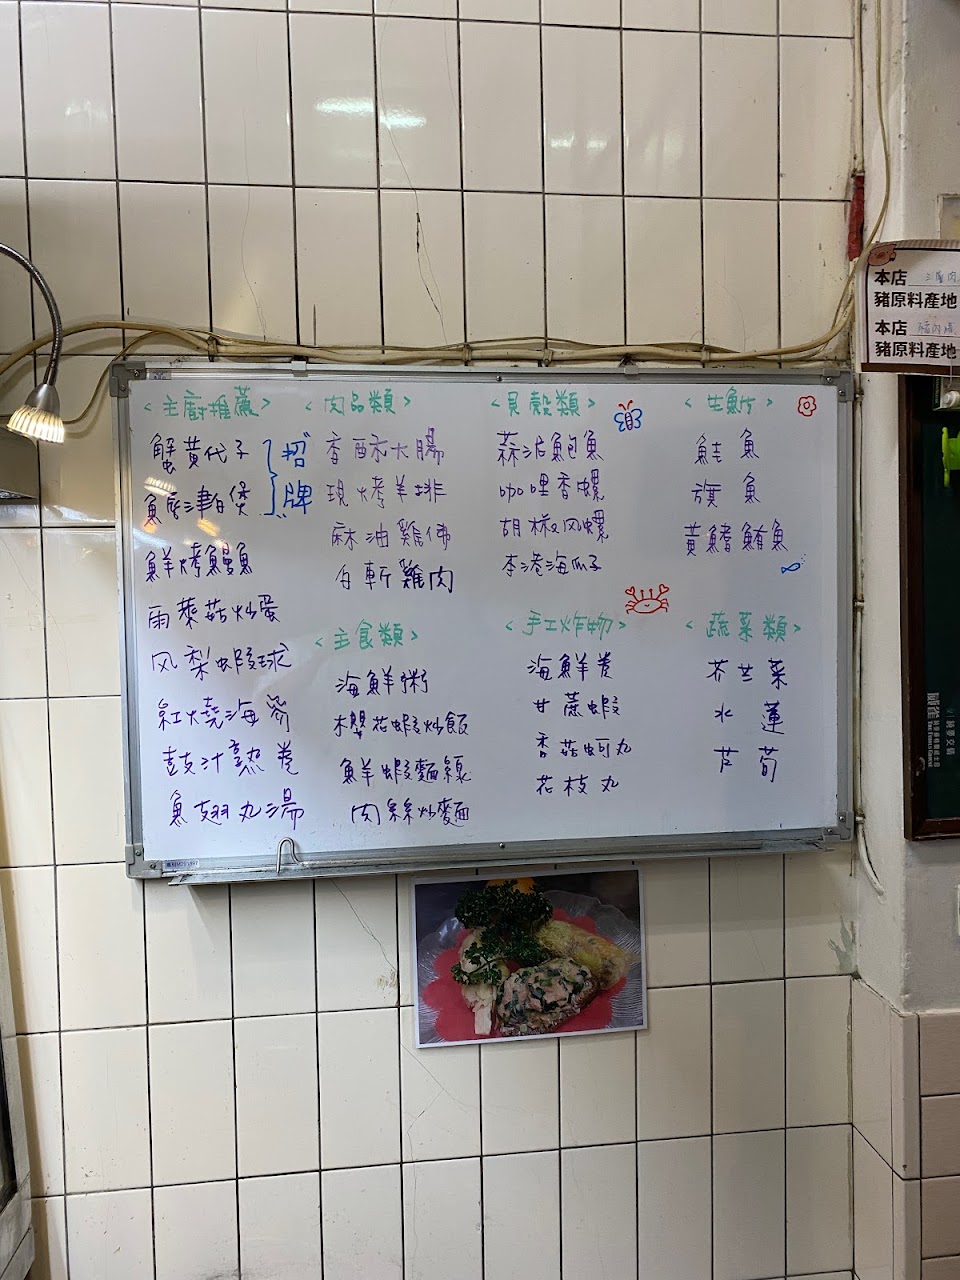 <主廚推薦>
蟹黃代子
魚唇津白煲
"招牌"
鮮烤鰻魚
雨萊菇炒蛋
风梨蝦球
紅燒海參
鼓汁裊卷
魚翅丸湯
<肉品類>
香酥大腸
現烤羊排
麻油雞佛
白斬雞肉
<主食類>
海鮮粥
櫻花蝦炒飯
鮮蝦麵線
肉絲炒麵
<貝殼類>
蒜泥鮑魚
咖哩香螺
胡椒风螺
李港海瓜子
<手工炸物>
海鮮卷
甘蔗蝦
香菇蚵丸
花枝丸
<生魚片>
鮭魚
旗魚
黃鰭鮪魚
<蔬菜類>
芥兰菜
水蓮
芦筍
本店 三層肉
豬原料產地
本店
豬原料產地